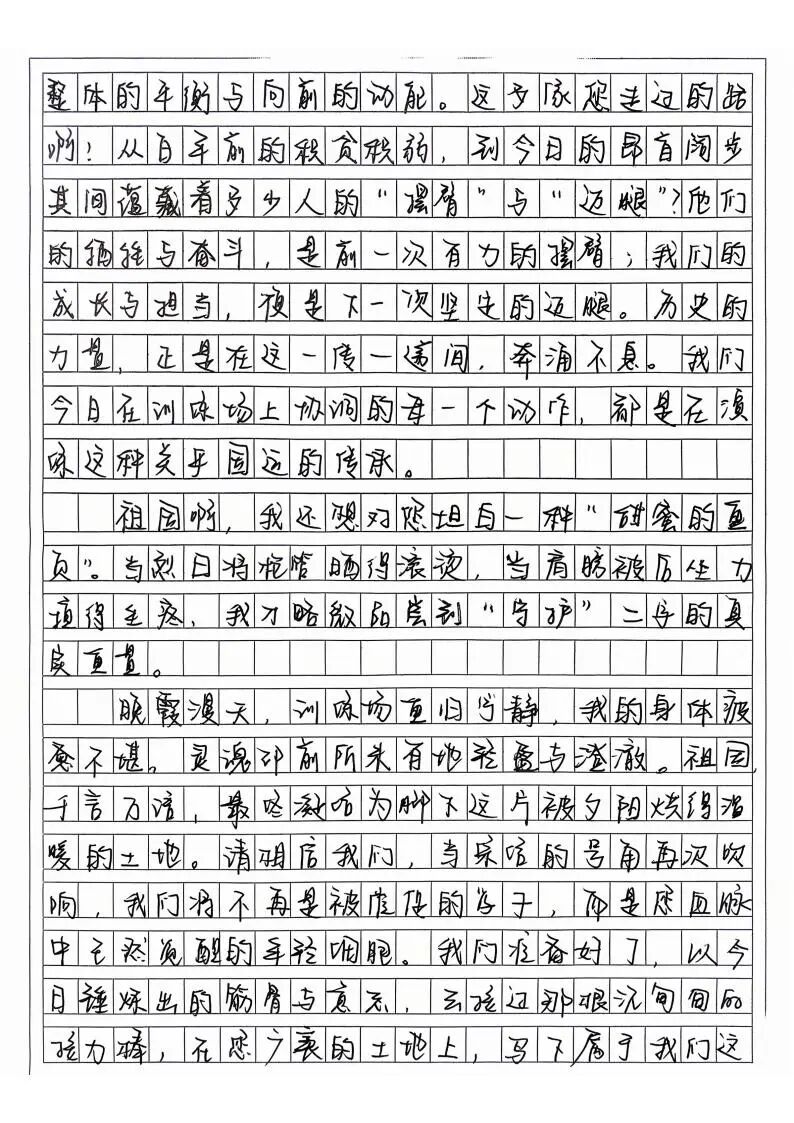 整体的平衡与向前的动能。这多像您走过的路
啊！从百年前的积贫积弱，到今日的昂首阔步
其间蕴藏着多少人的“摆臂”与“迈腿”？他们
的牺牲与奋斗，是前一次有力的摆臂；我们的
成长与担当，便是下一次坚定的迈腿。历史的
力量，正是在这一传一递间，奔涌不息。我们
今日在训练场上协调的每一个动作，都是在演
练这种关乎国运的传承。
祖国啊，我还想对您坦白一种“甜蜜的重
负”。当烈日将枪管晒得滚烫，当肩膀被后坐力
撞得生疼，我才略微品尝到“守护”二字的真
实重量。
晚霞漫天，训练场重归宁静，我的身体疲
惫不堪，灵魂却前所未有地轻盈与澄澈。祖国，
千言万语，最终凝结为脚下这片被夕阳烧得温
暖的土地。请相信我们，当集结的号角再次吹
响，我们将不再是被庇佑的学子，而是您血脉
中已然觉醒的年轻细胞。我们准备好了，以今
日锤炼出的筋骨与意志，去接过那根沉甸甸的
接力棒，在您广袤的土地上，写下属于我们这